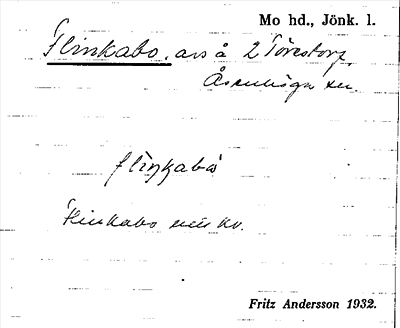 Mo hd., Jönk. l.
Flinkabo, avs å 2 Torestorp,
Åsenhöga sn.
flìŋkabω
Flinkabo min kv.
Fritz Andersson 1932.